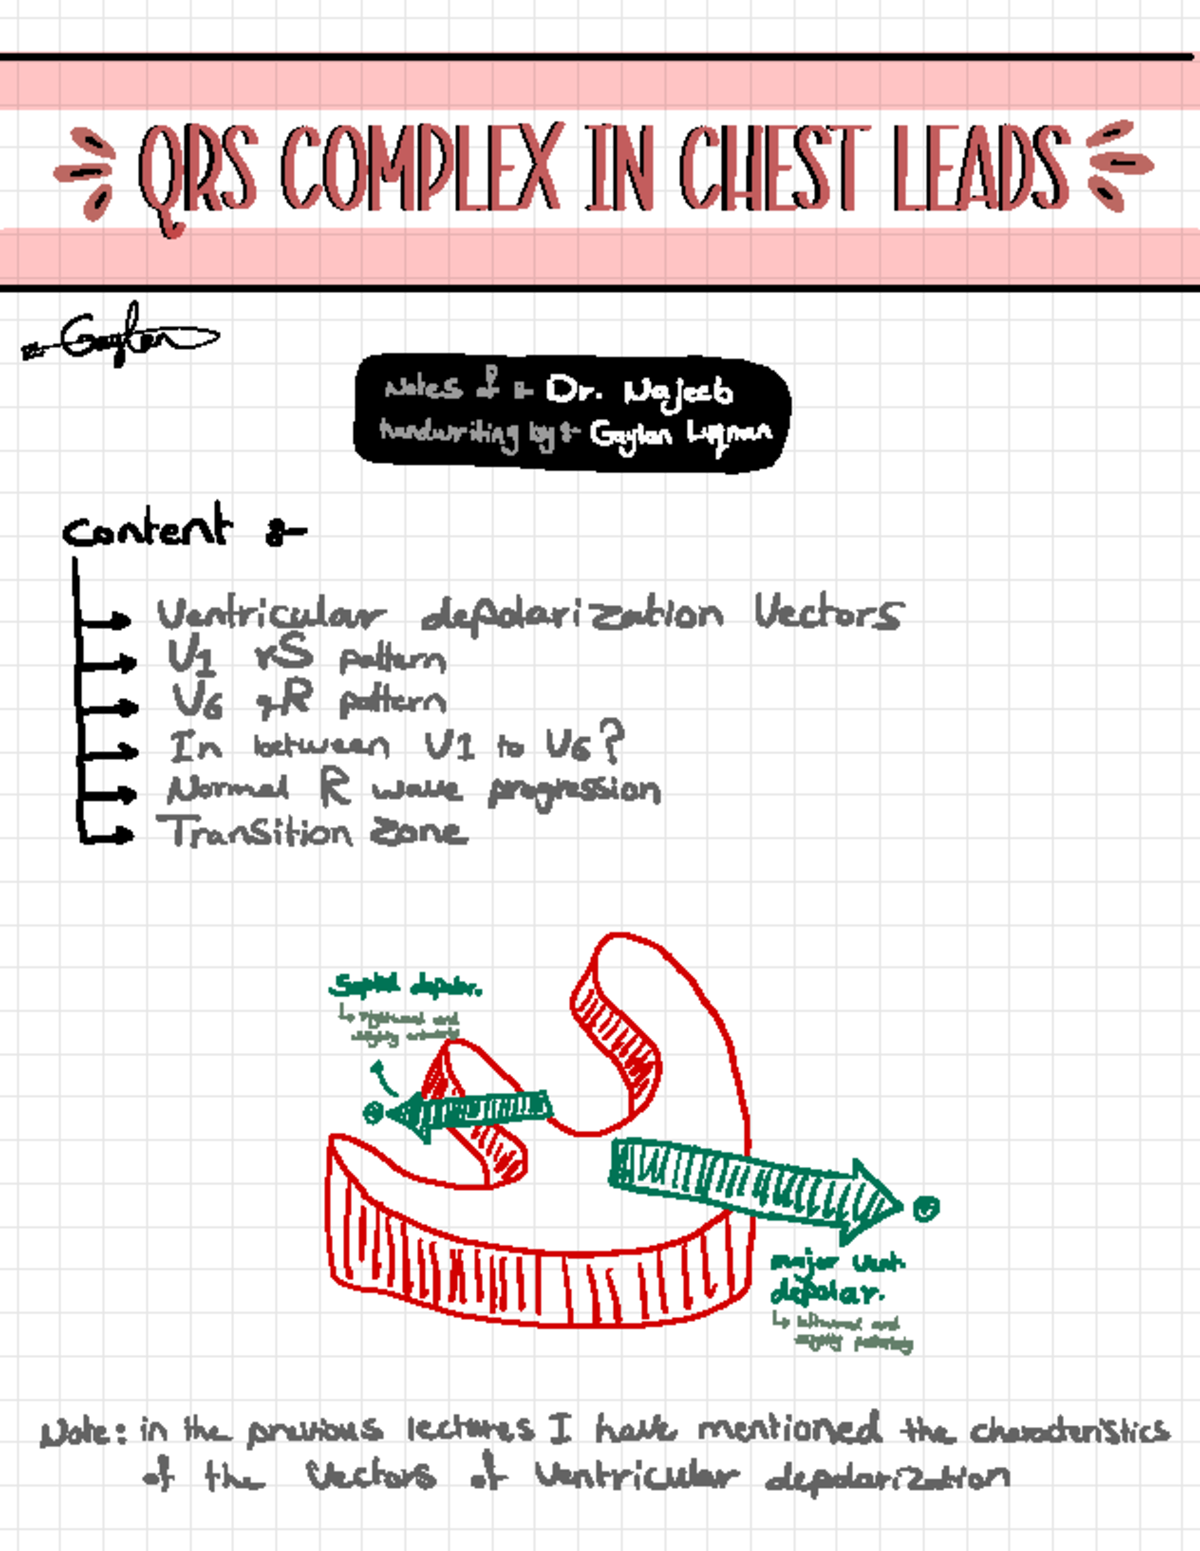 QRS COMPLEX IN CHEST LEADS
Gaylan
Notes of :- Dr. Najeeb
handwriting by :- Gaylan Luqman
Content :-
Ventricular depolarization Vectors
V1 rS pattern
V6 qR pattern
In between V1 to V6?
Normal R wave progression
Transition Zone
Septal depolar.
↳ rightward and
slightly anteriorly
major vent.
depolar.
↳ leftward and
slightly posteriorly
Note: in the previous lectures I have mentioned the characteristics
of the Vectors of Ventricular depolarization